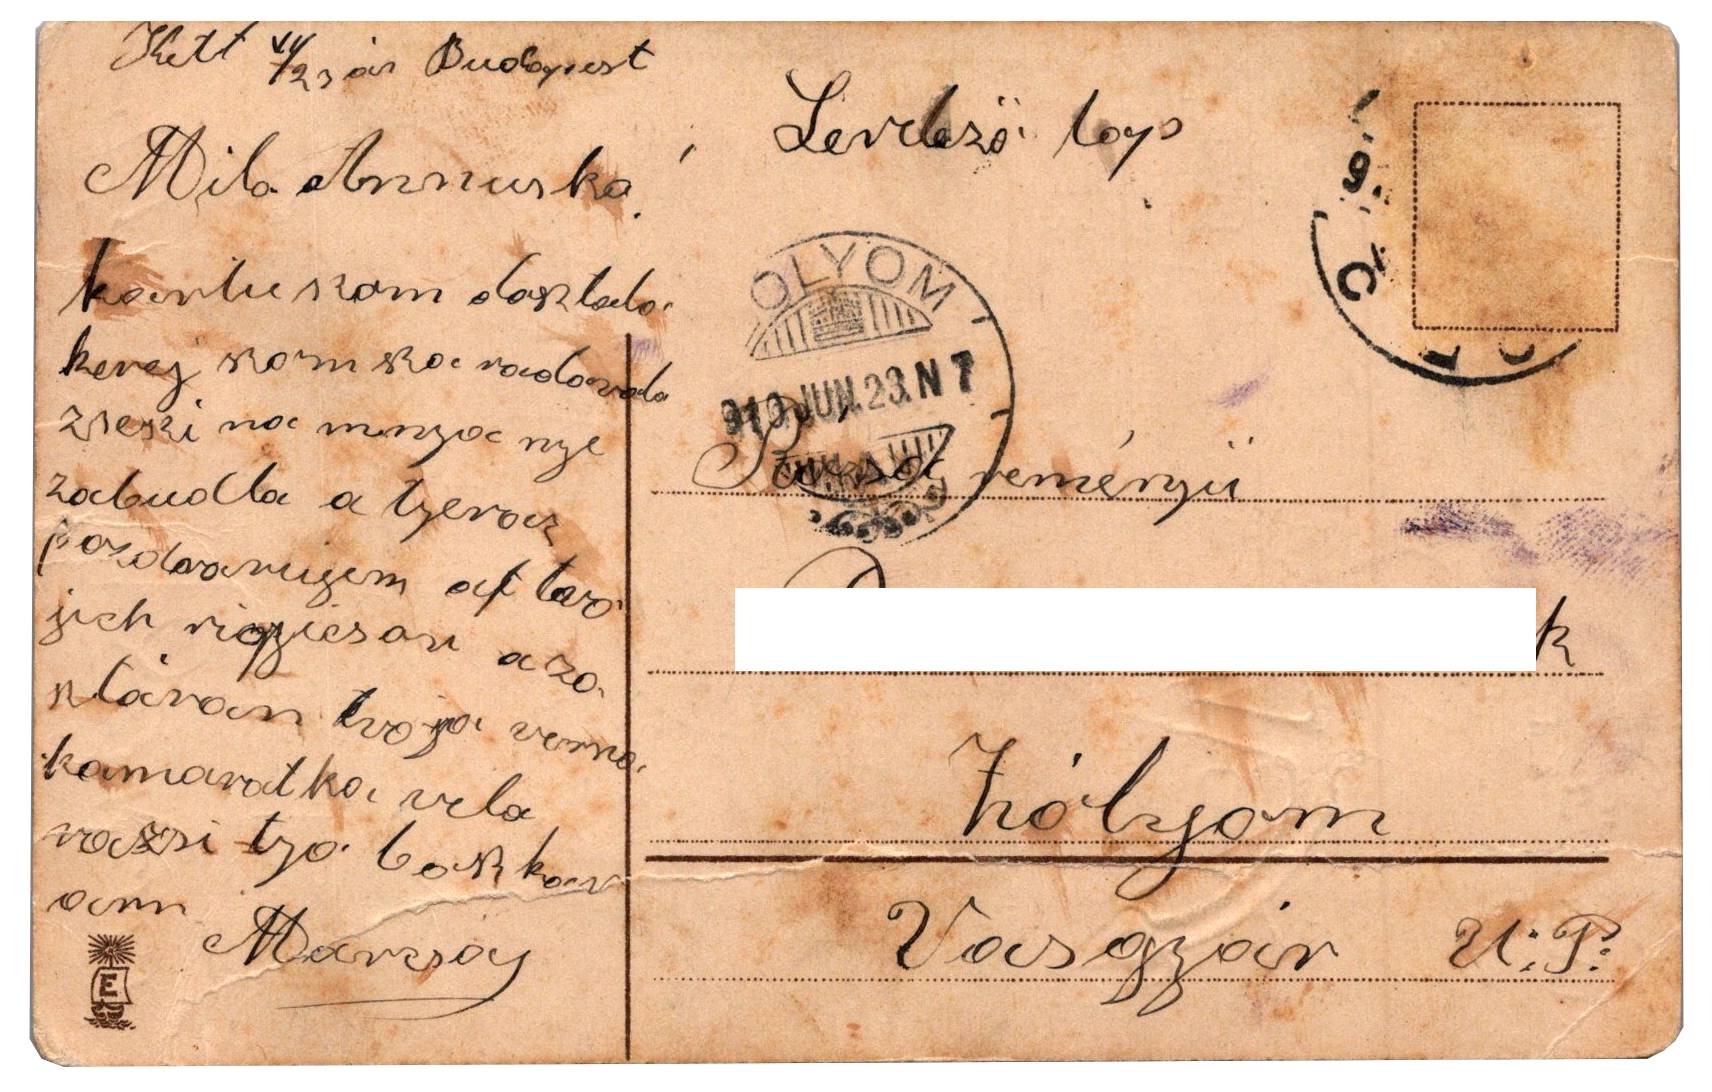 Kelt VI/23 án Budapest
Mila Annuska,
kartu szom dosztala
kerej szom sza radovala
zseszi na mnya nye
zabudla a tyeraz
pozdravujem
jich a zo
sztávam tvoja verna
kamaratka vela
razsi tya boszkav
am Marcsay
E
Levelező lap
OLYOM
910 JUN. 23. N 7
reményü
k
Zólyom
Vasgyár U. P.